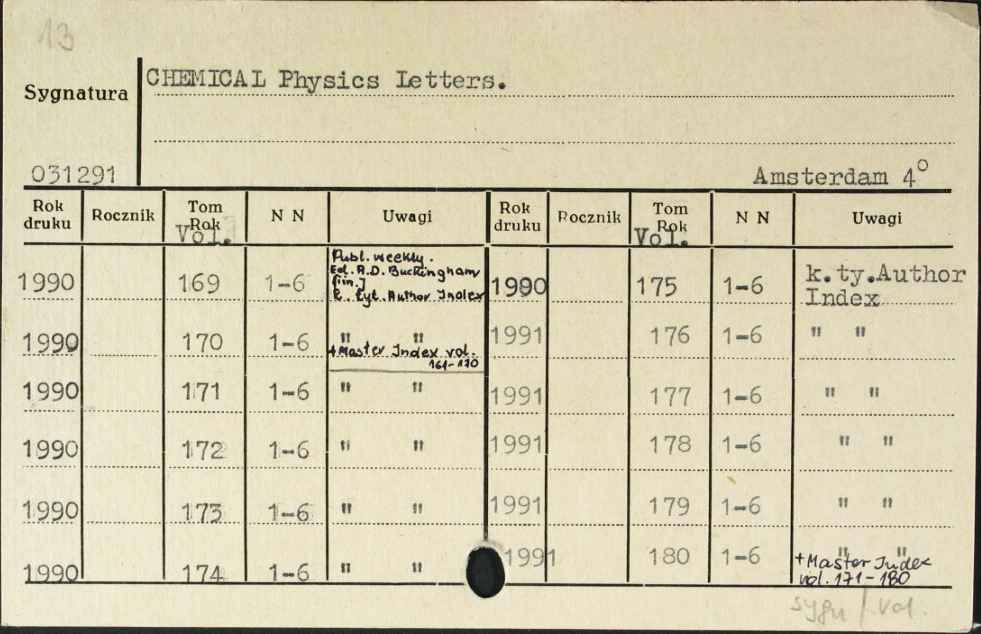 13
CHEMICAL Physics Letters.
Sygnatura
031291
Amsterdam 4°
Rok druku Rocznik Tom Rok Vol. N N Uwagi Rok druku Rocznik Tom Rok Vol. N N Uwagi
Publ. weekly.
Ed. A.D. Buckingham
[i in.]
k. tyt. Author Index
1990 169 1-6 1990 175 1-6 k.ty.Author
Index
1990 170 1-6 " " 1991 176 1-6 " "
+Master Index vol.
161-170
1990 171 1-6 " " 1991 177 1-6 " "
1990 172 1-6 " " 1991 178 1-6 " "
1990 173 1-6 " " 1991 179 1-6 " "
1990 174 1-6 " " 1991 180 1-6 " "
+Master Index
vol. 171-180
sygn / vol.